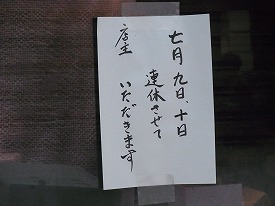 七月九日、十日
連休させて
いただきます
店主